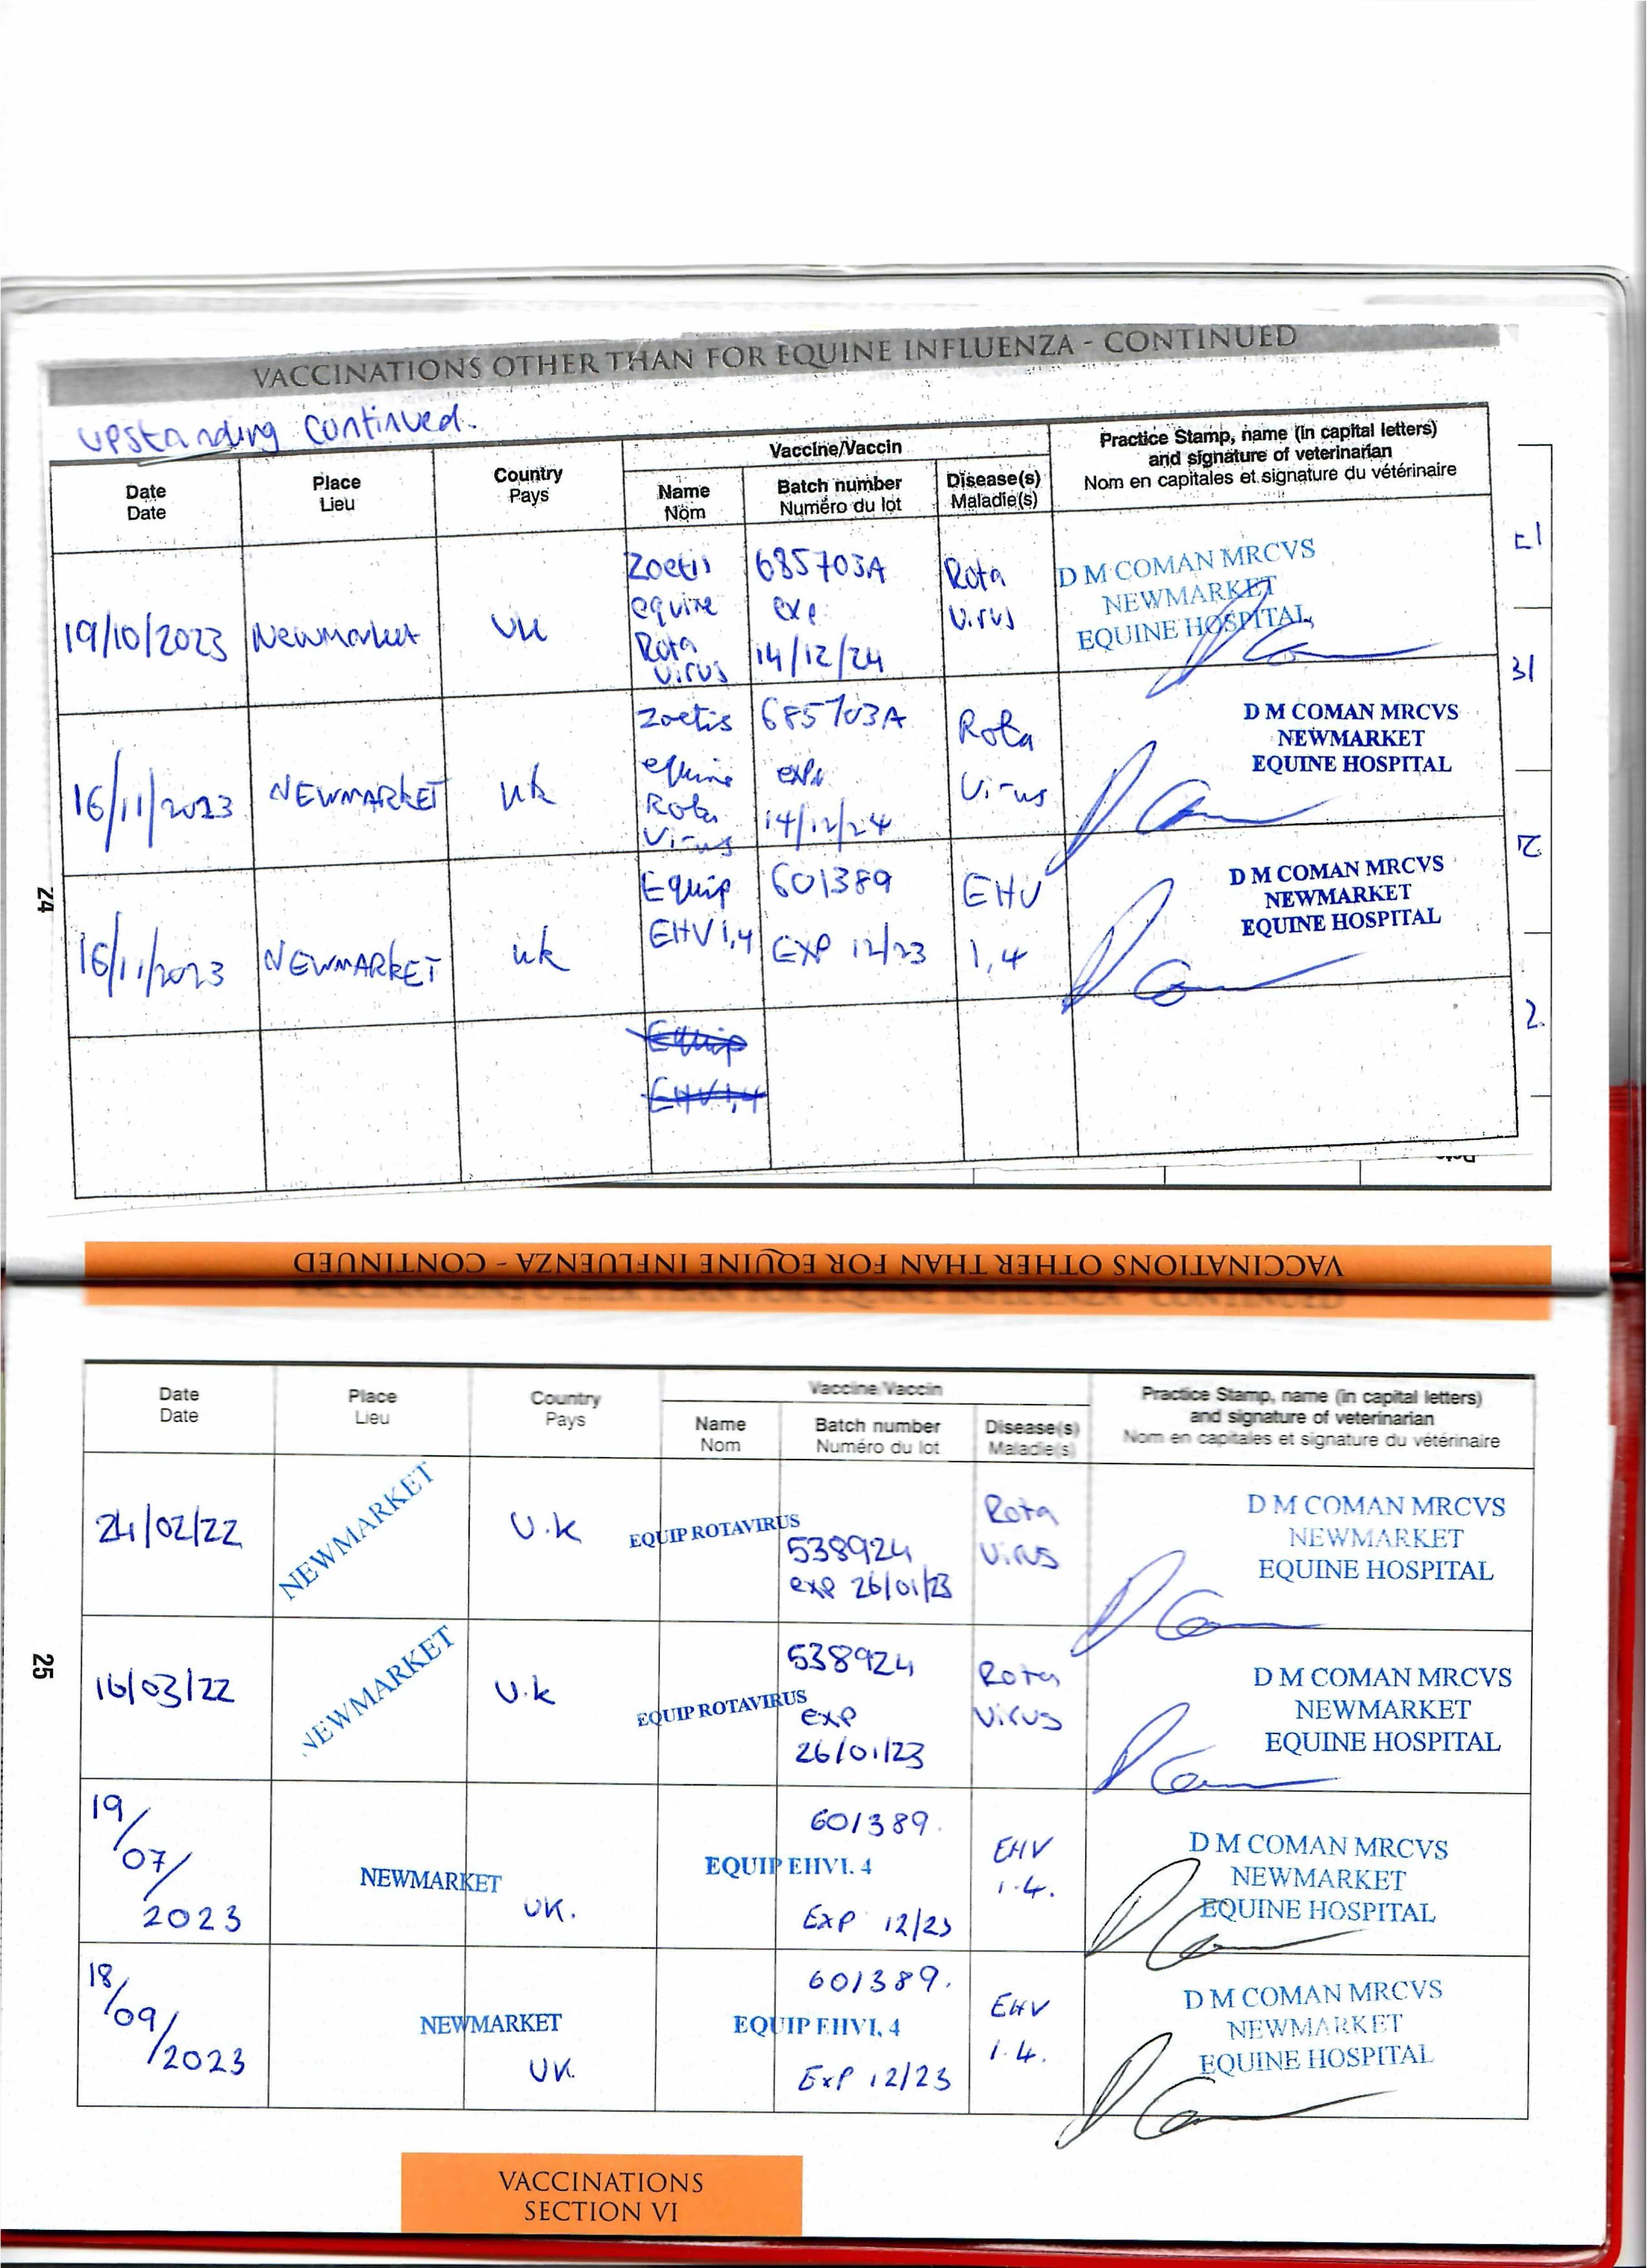 VACCINATIONS OTHER THAN FOR EQUINE INFLUENZA - CONTINUED
upstanding continued.
Date
Date
Place
Lieu
Country
Pays
Vaccine/Vaccin
Name
Nom
Batch number
Numéro du lot
Disease(s)
Maladie(s)
Practice Stamp, name (in capital letters)
and signature of veterinarian
Nom en capitales et signature du vétérinaire
19/10/2023
Newmarket
UK
Zoetis
equine
Rota
Virus
685703A
exp
14/12/24
Rota
Virus
D M COMAN MRCVS
NEWMARKET
EQUINE HOSPITAL
16/11/2023
NEWMARKET
UK
Zoetis
equine
Rota
Virus
685703A
exp
14/12/24
Rota
Virus
D M COMAN MRCVS
NEWMARKET
EQUINE HOSPITAL
16/11/2023
NEWMARKET
UK
Equip
EHV 1,4
601389
EXP 12/23
EHV
1,4
D M COMAN MRCVS
NEWMARKET
EQUINE HOSPITAL
Equip
EHV 1,4
24
VACCINATIONS OTHER THAN FOR EQUINE INFLUENZA - CONTINUED
Date
Date
Place
Lieu
Country
Pays
Vaccine/Vaccin
Name
Nom
Batch number
Numéro du lot
Disease(s)
Maladie(s)
Practice Stamp, name (in capital letters)
and signature of veterinarian
Nom en capitales et signature du vétérinaire
24/02/22
NEWMARKET
U.K
EQUIP ROTAVIRUS
538924
exp 26/01/23
Rota
Virus
D M COMAN MRCVS
NEWMARKET
EQUINE HOSPITAL
16/03/22
NEWMARKET
U.K
EQUIP ROTAVIRUS
538924
exp
26/01/23
Rota
Virus
D M COMAN MRCVS
NEWMARKET
EQUINE HOSPITAL
19/
07/
2023
NEWMARKET
UK.
EQUIP EHV1, 4
601389.
EXP 12/23
EHV
1.4.
D M COMAN MRCVS
NEWMARKET
EQUINE HOSPITAL
18/
09/
2023
NEWMARKET
UK.
EQUIP EHV1, 4
601389.
EXP 12/23
EHV
1.4.
D M COMAN MRCVS
NEWMARKET
EQUINE HOSPITAL
25
VACCINATIONS
SECTION VI